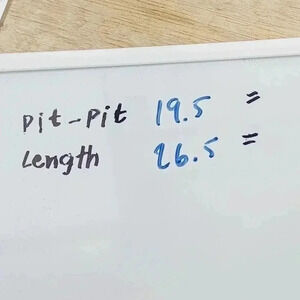 pit-pit 19.5 =
Length 26.5 =